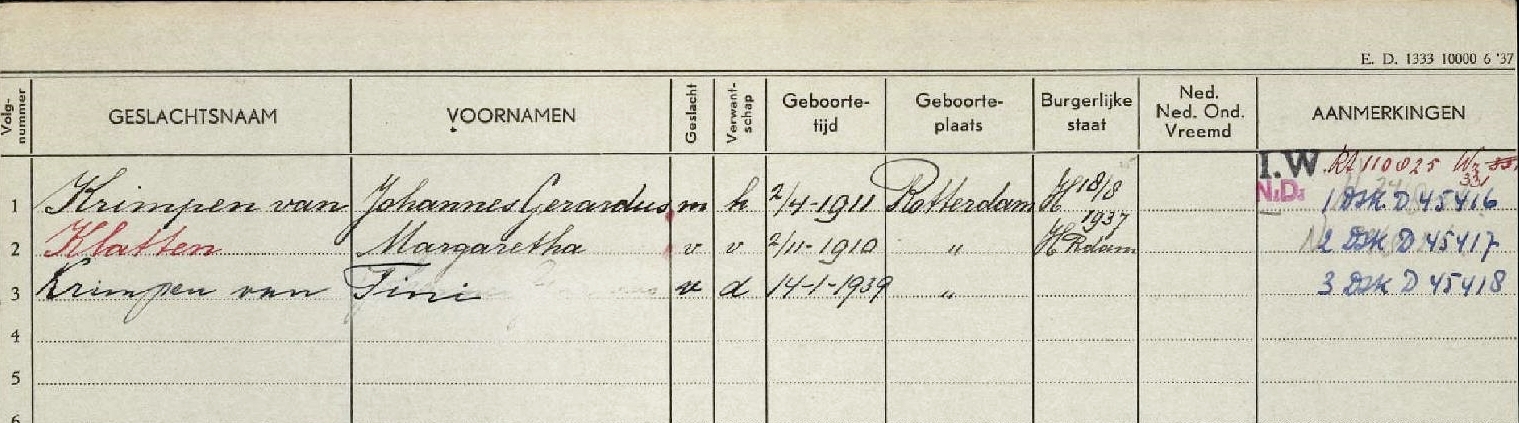 E. D. 1333 10000 6 '37
Volg-nummer GESLACHTSNAAM VOORNAMEN Geslacht Verwant-schap Geboorte-tijd Geboorte-plaats Burgerlijke staat Ned. Ned. Ond. Vreemd AANMERKINGEN
I.W Kt 110025 Wz
33
1 Krimpen van Johannes Gerardus m h 2/4-1911 Rotterdam H 18/8 1937 N.D. 1 DSK D 45416
2 Klatten Margaretha v v 2/11-1910 " H Rdam 2 DSK D 45417
3 Krimpen van Tini v d 14-1-1939 " 3 DSK D 45418
4
5
6